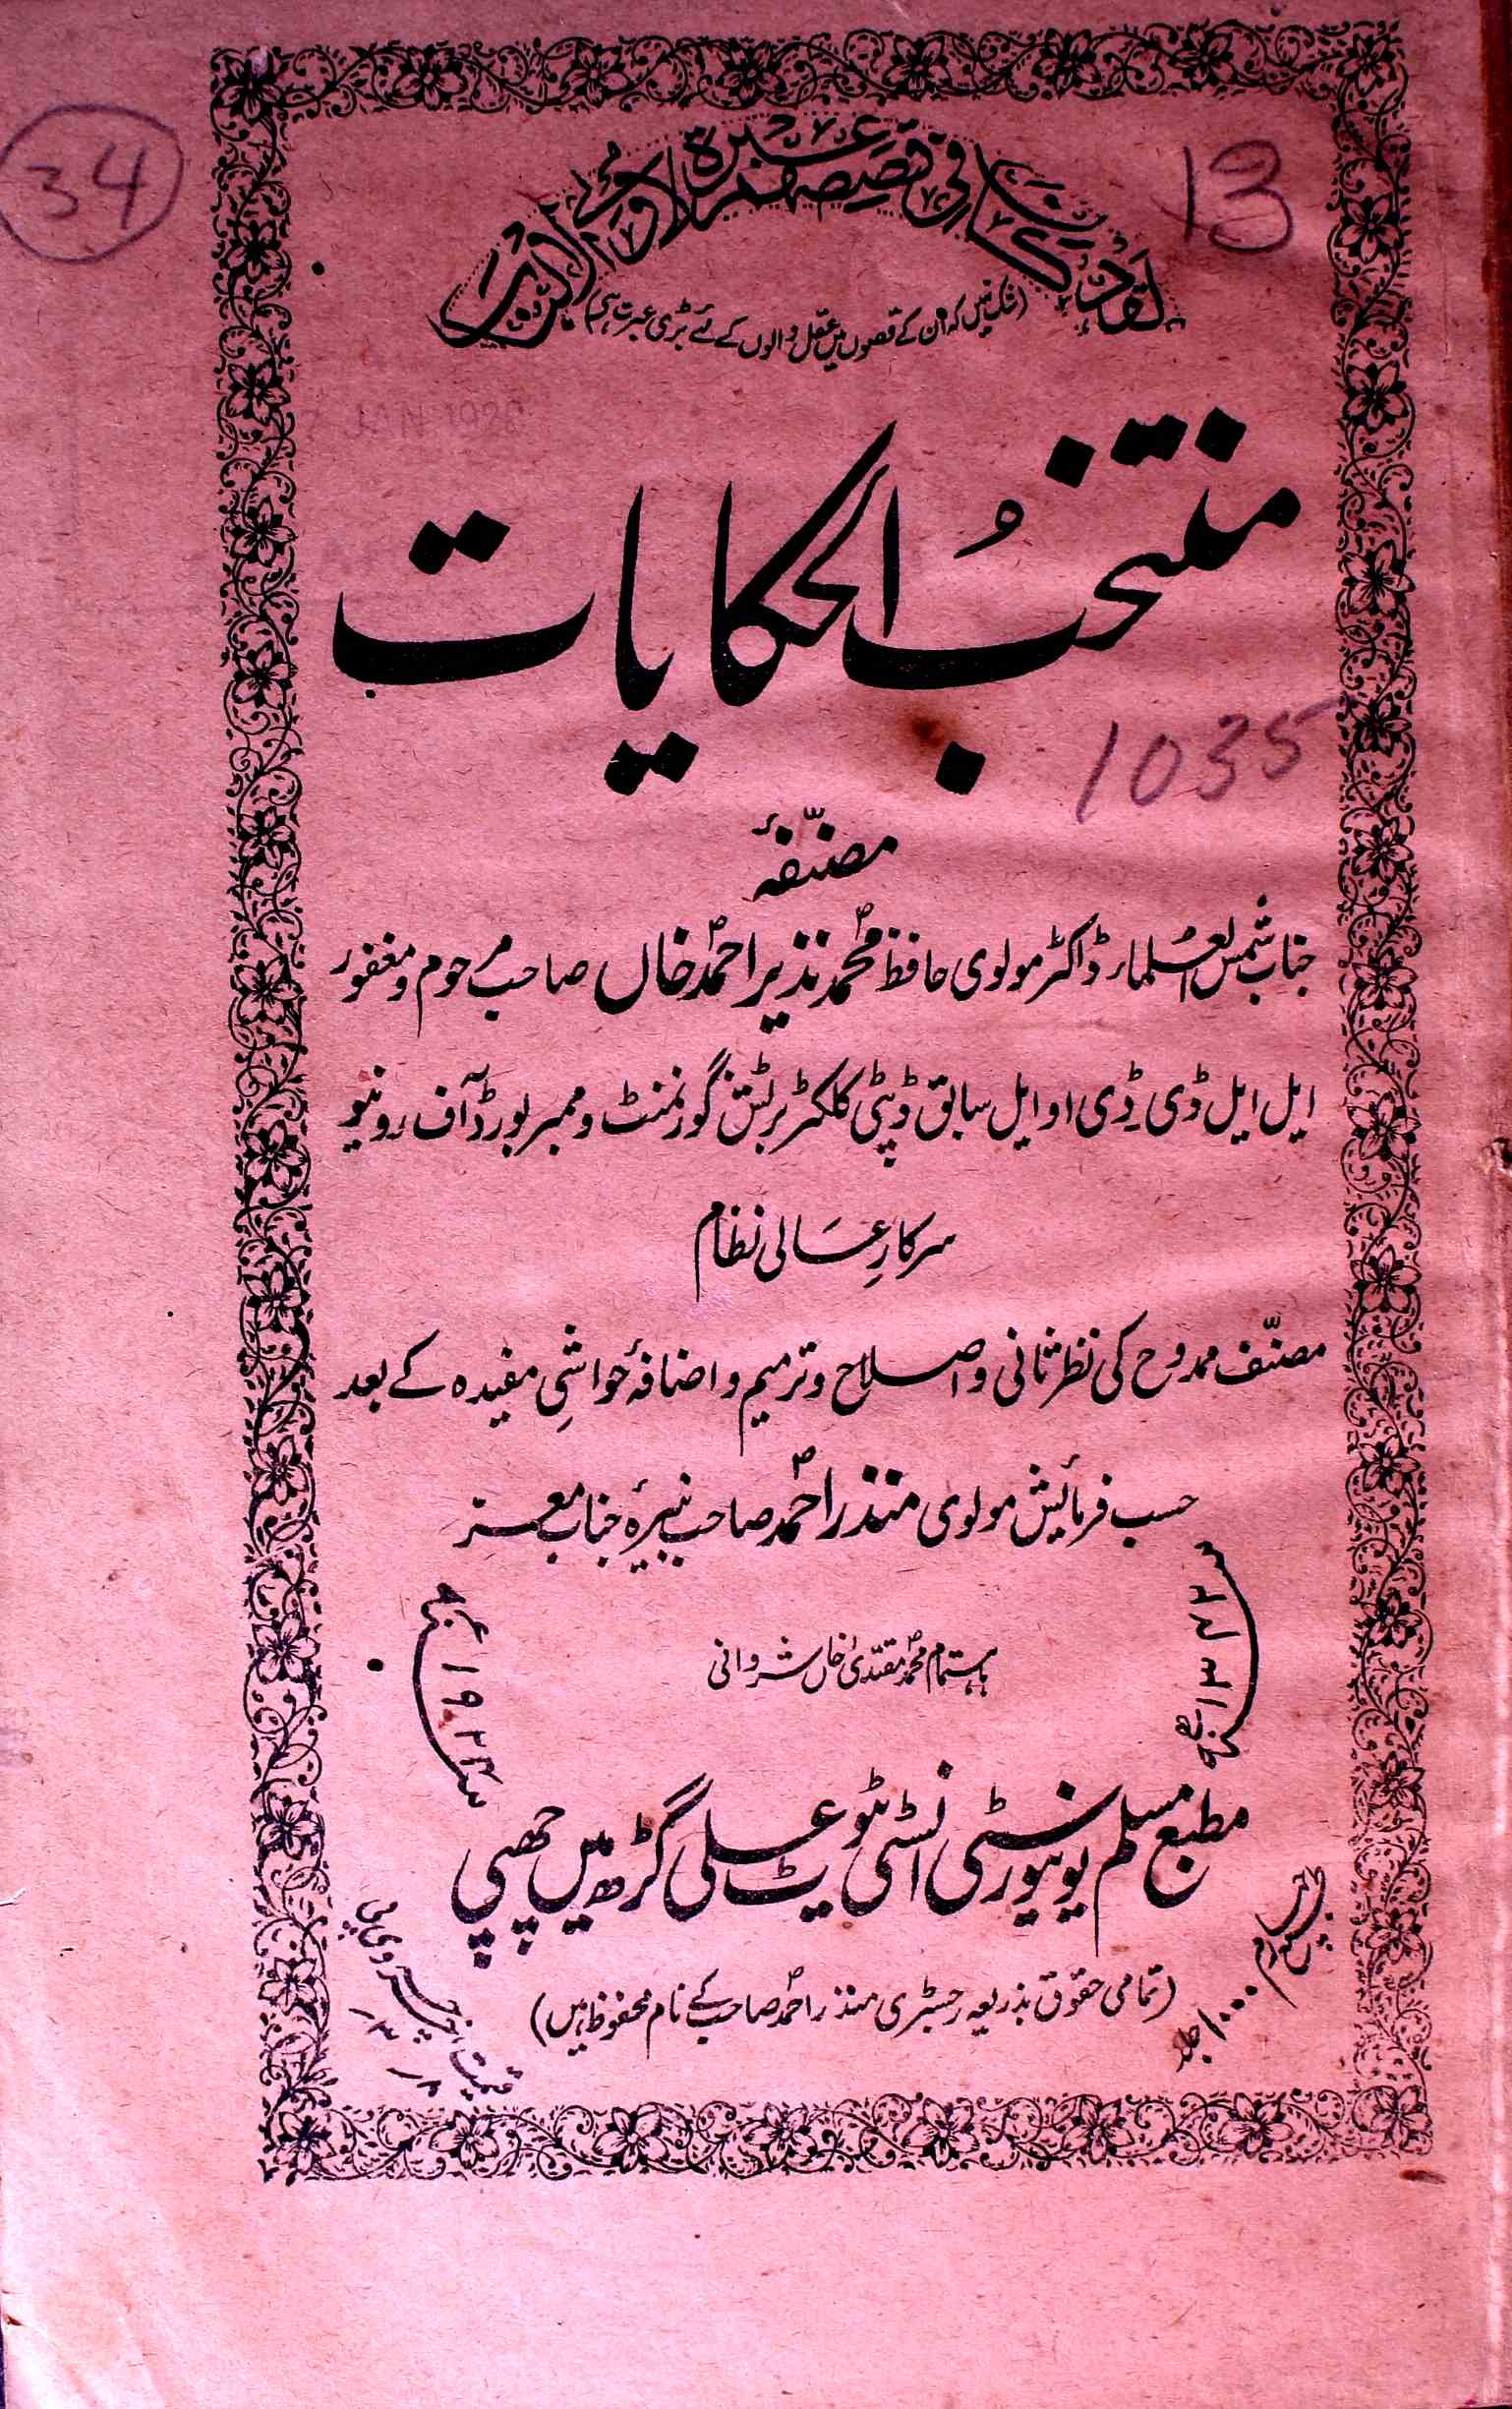 34
13
لقد كان في قصصهم عبرة لاولي الالباب
(شک نہیں کہ ان کے قصوں میں عقل والوں کے لئے بڑی عبرت ہی)
JAN 1928
منتخب الحکایات
1035
مصنّفۂ
جناب شمس العلماء ڈاکٹر مولوی حافظ محمد نذیر احمد خاں صاحب مرحوم و مغفور
ایل ایل ڈی ڈی او ایل سابق ڈپٹی کلکٹر برٹش گورنمنٹ و ممبر بورڈ آف رونیو
سرکارِ عالی نظام
مصنّف ممدوح کی نظر ثانی و اصلاح و ترمیم و اضافۂ حواشیِ مفیدہ کے بعد
حسب فرمائیش مولوی منذر احمد صاحب نبیرۂ جناب معز
باہتمام محمد مقتدیٰ خاں شروانی
مطبع مسلم یونیورسٹی انسٹی ٹیوٹ علی گڑھ میں چھپی
(تمامی حقوق بذریعہ رجسٹری منذر احمد صاحب کے نام محفوظ ہیں)
۱۰۰۰ جلد
قیمت